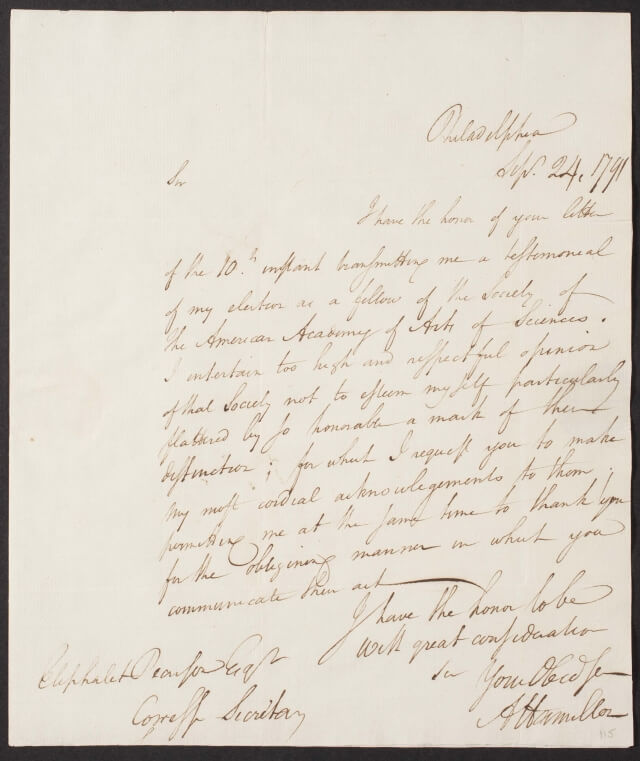 Philadelphia
Sep. 24, 1791
Sir
I have the honor of your letter
of the 10.th instant transmitting me a testimonial
of my election as a fellow of the Society of
the American Academy of Arts & Sciences.
I entertain too high and respectful opinion
of that Society not to esteem myself particularly
flattered by so honorable a mark of their
distinction; for which I request you to make
my most cordial acknowlegements to them;
permitting me at the same time to thank you
for the obliging manner in which you
communicate their act
I have the honor to be
With great consideration
Sir Your Obed Ser
A Hamilton
Eliphalet Pearson Esqr
Corresp Secretary
115